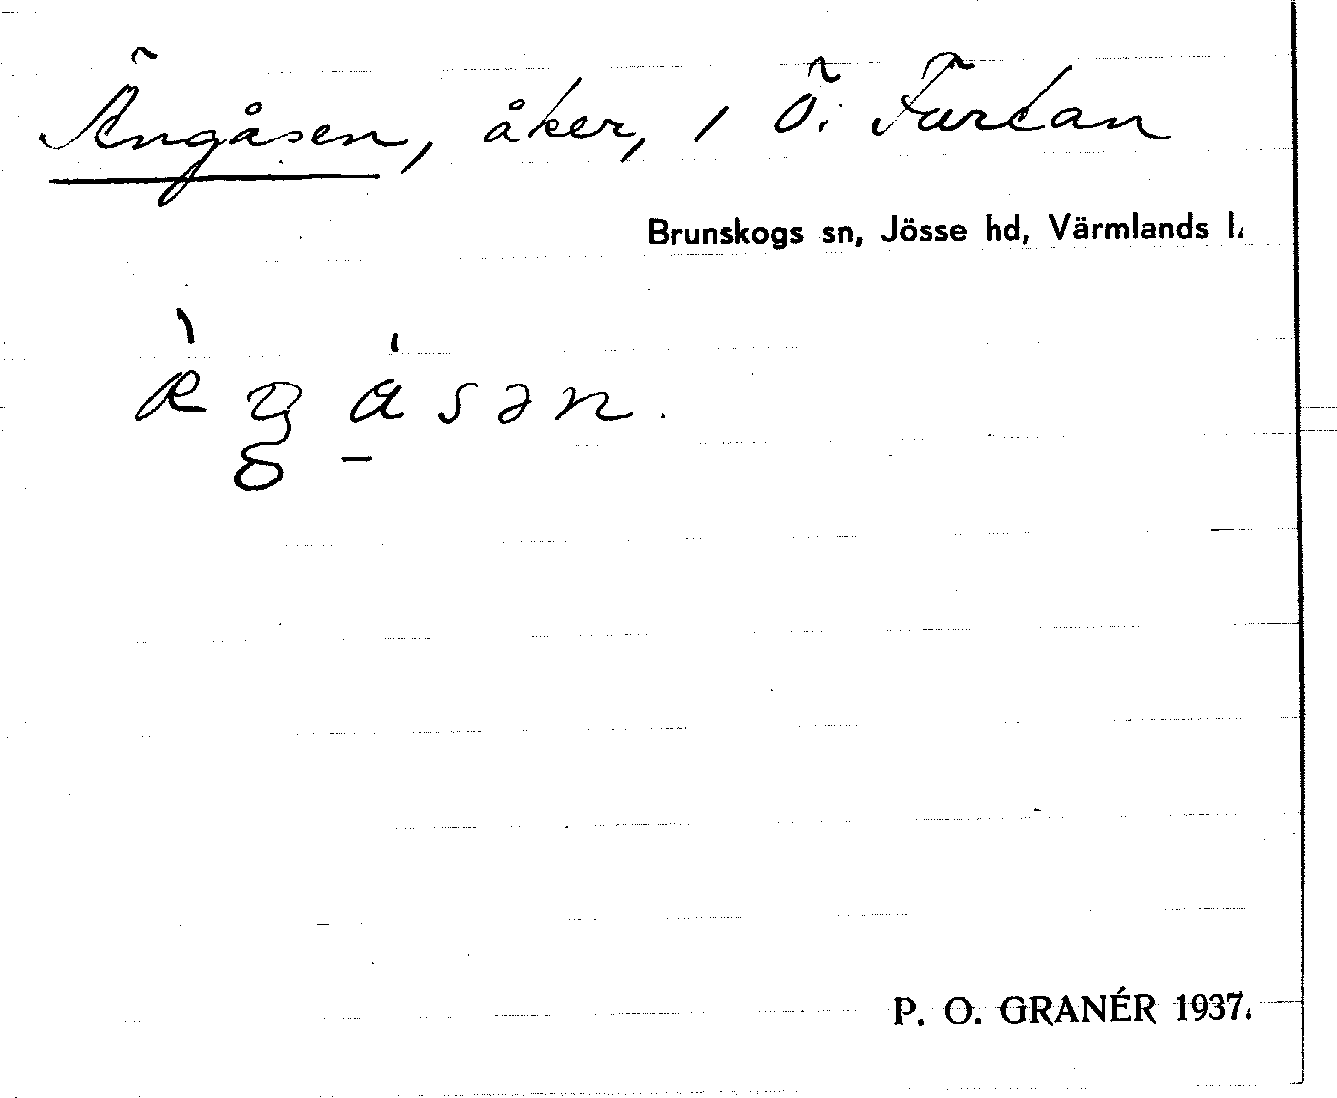 Ängåsen, åker, i Ö. Furtan
Brunskogs sn, Jösse hd, Värmlands l.
P. O. GRANÉR 1937.